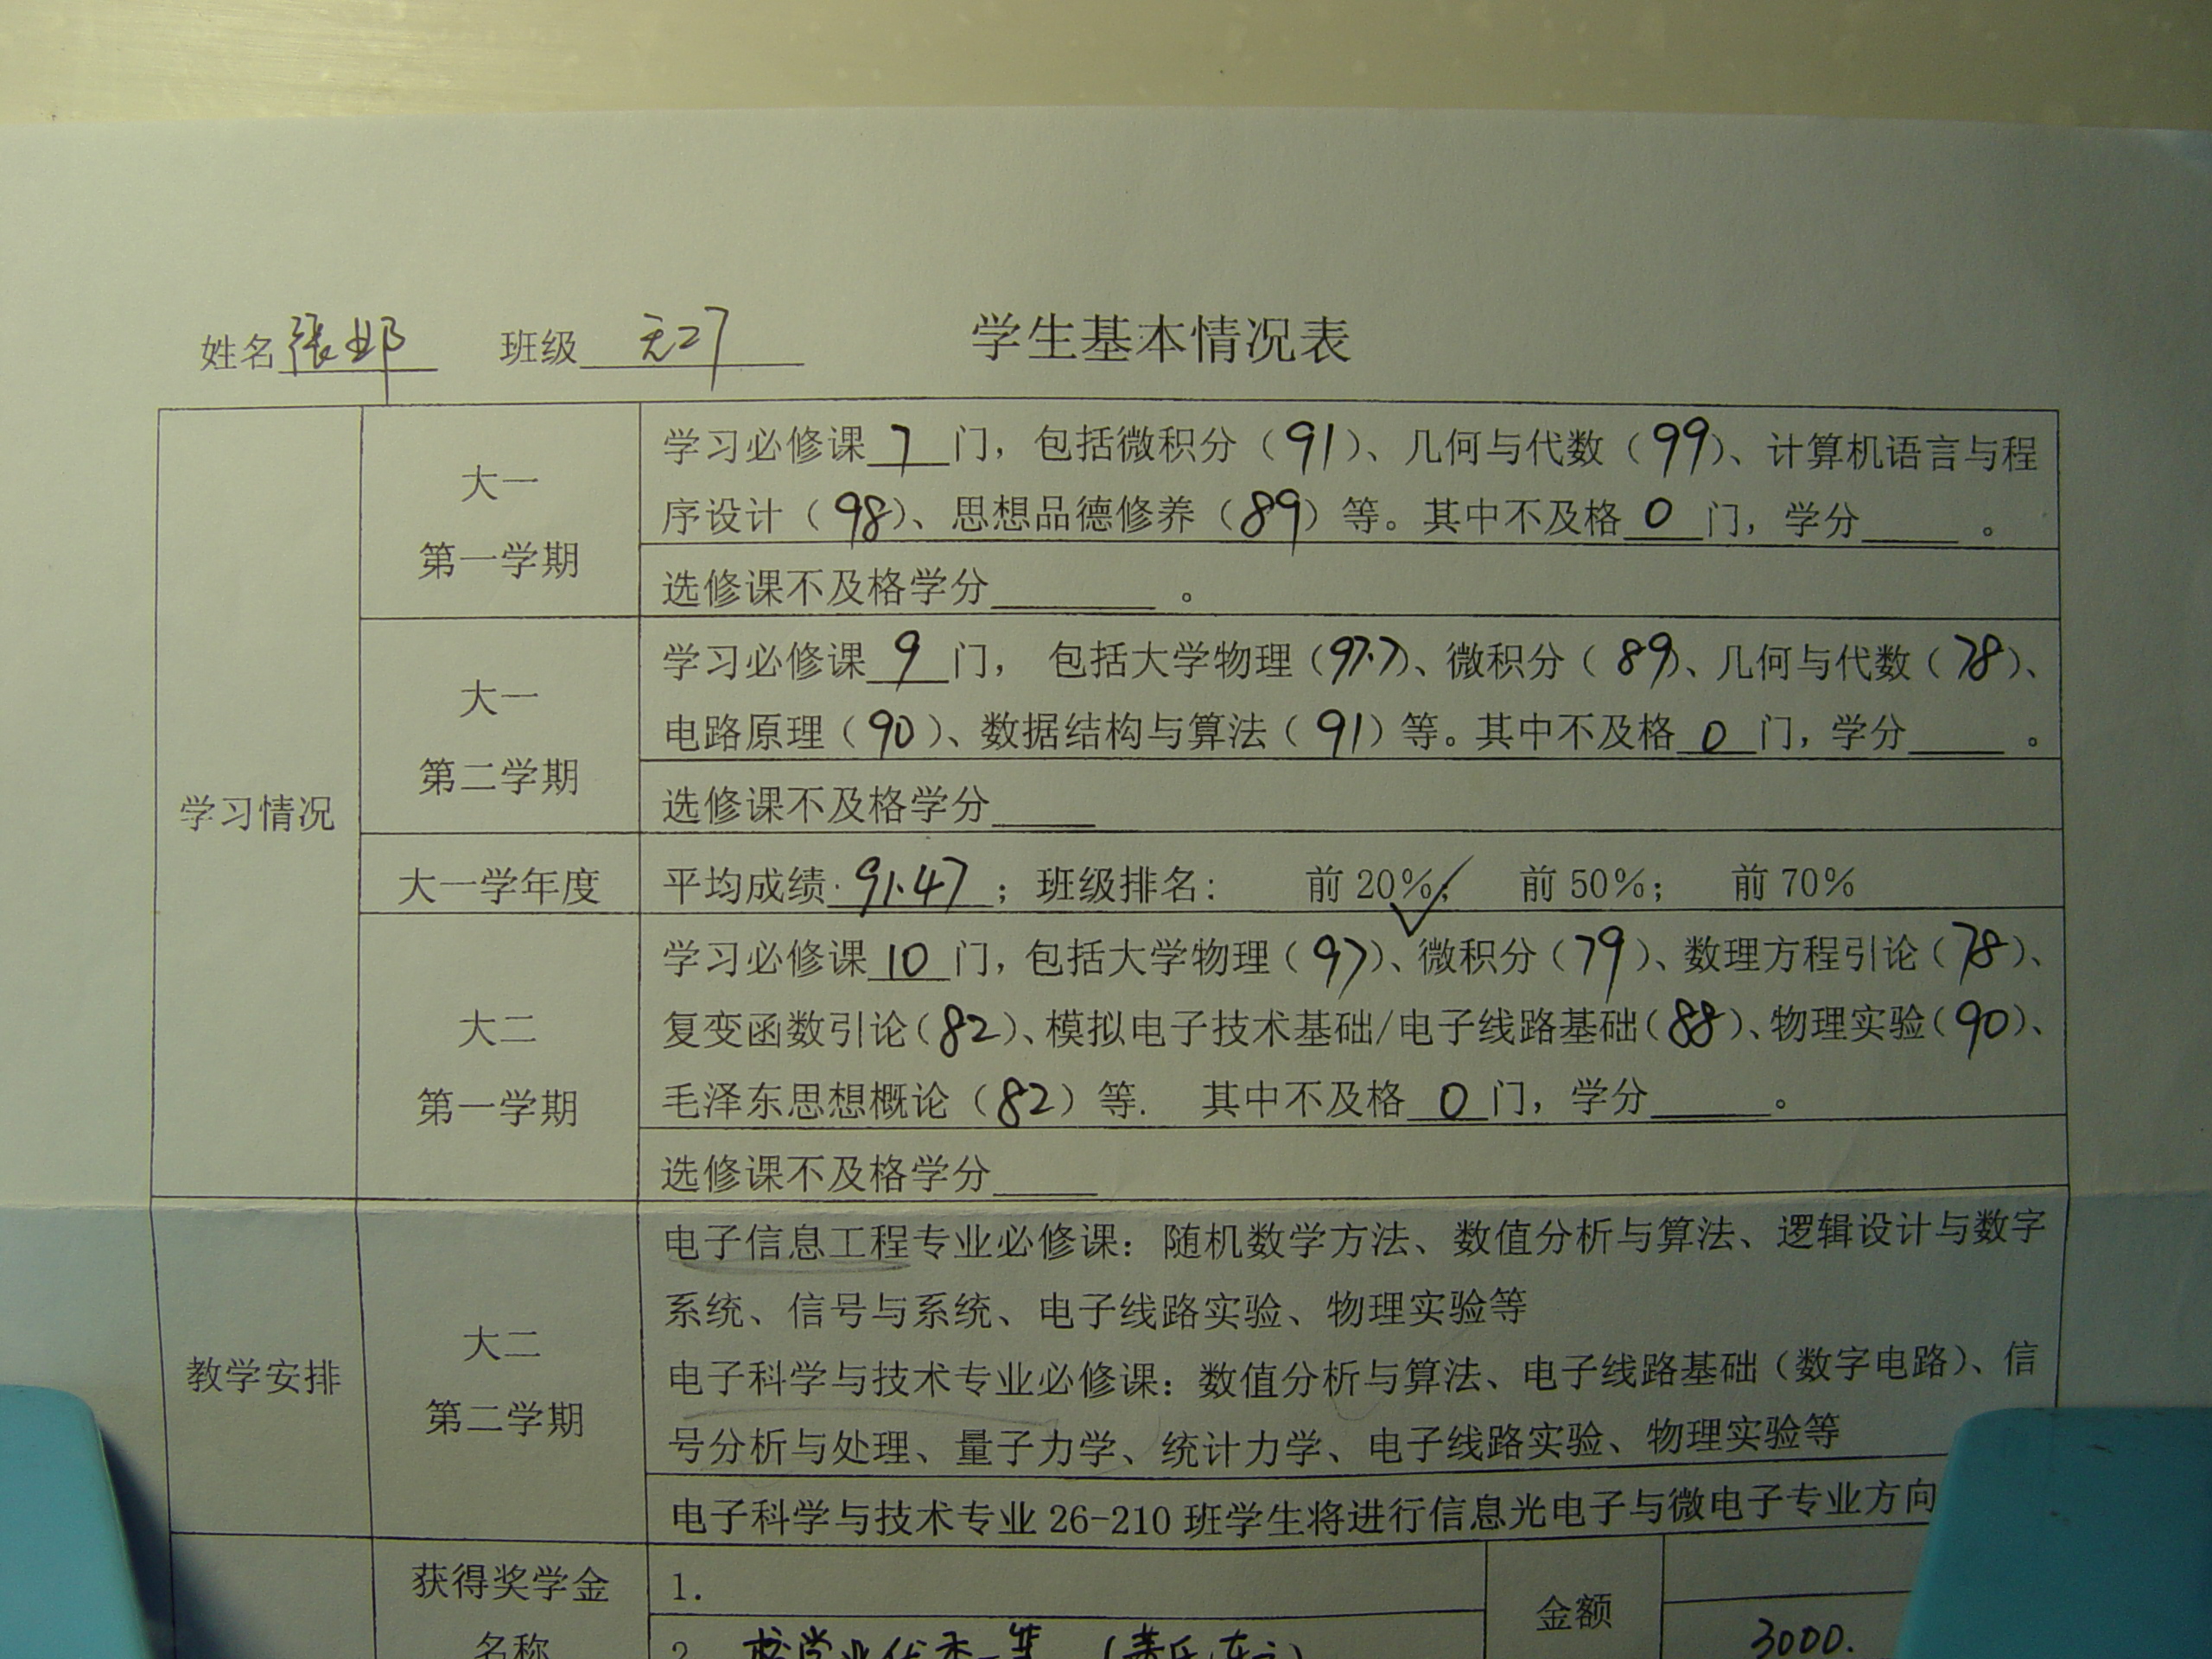 姓名 张邶 班级 无27 学生基本情况表
学习情况
大一
第一学期
学习必修课 7 门，包括微积分（91）、几何与代数（99）、计算机语言与程
序设计（98）、思想品德修养（89）等。其中不及格 0 门，学分____ 。
选修课不及格学分____ 。
大一
第二学期
学习必修课 9 门， 包括大学物理（97.7）、微积分（89）、几何与代数（78）、
电路原理（90）、数据结构与算法（91）等。其中不及格 0 门，学分____ 。
选修课不及格学分____
大一学年度
平均成绩 91.47 ；班级排名： 前20%；✓ 前50%； 前70%
大二
第一学期
学习必修课 10 门，包括大学物理（97）、微积分（79）、数理方程引论（78）、
复变函数引论（82）、模拟电子技术基础/电子线路基础（88）、物理实验（90）、
毛泽东思想概论（82）等. 其中不及格 0 门，学分____。
选修课不及格学分____
教学安排
大二
第二学期
电子信息工程专业必修课：随机数学方法、数值分析与算法、逻辑设计与数字
系统、信号与系统、电子线路实验、物理实验等
电子科学与技术专业必修课：数值分析与算法、电子线路基础（数字电路）、信
号分析与处理、量子力学、统计力学、电子线路实验、物理实验等
电子科学与技术专业 26-210 班学生将进行信息光电子与微电子专业方向
获得奖学金
名称
1.
2. 校学业优秀一等
金额
3000.